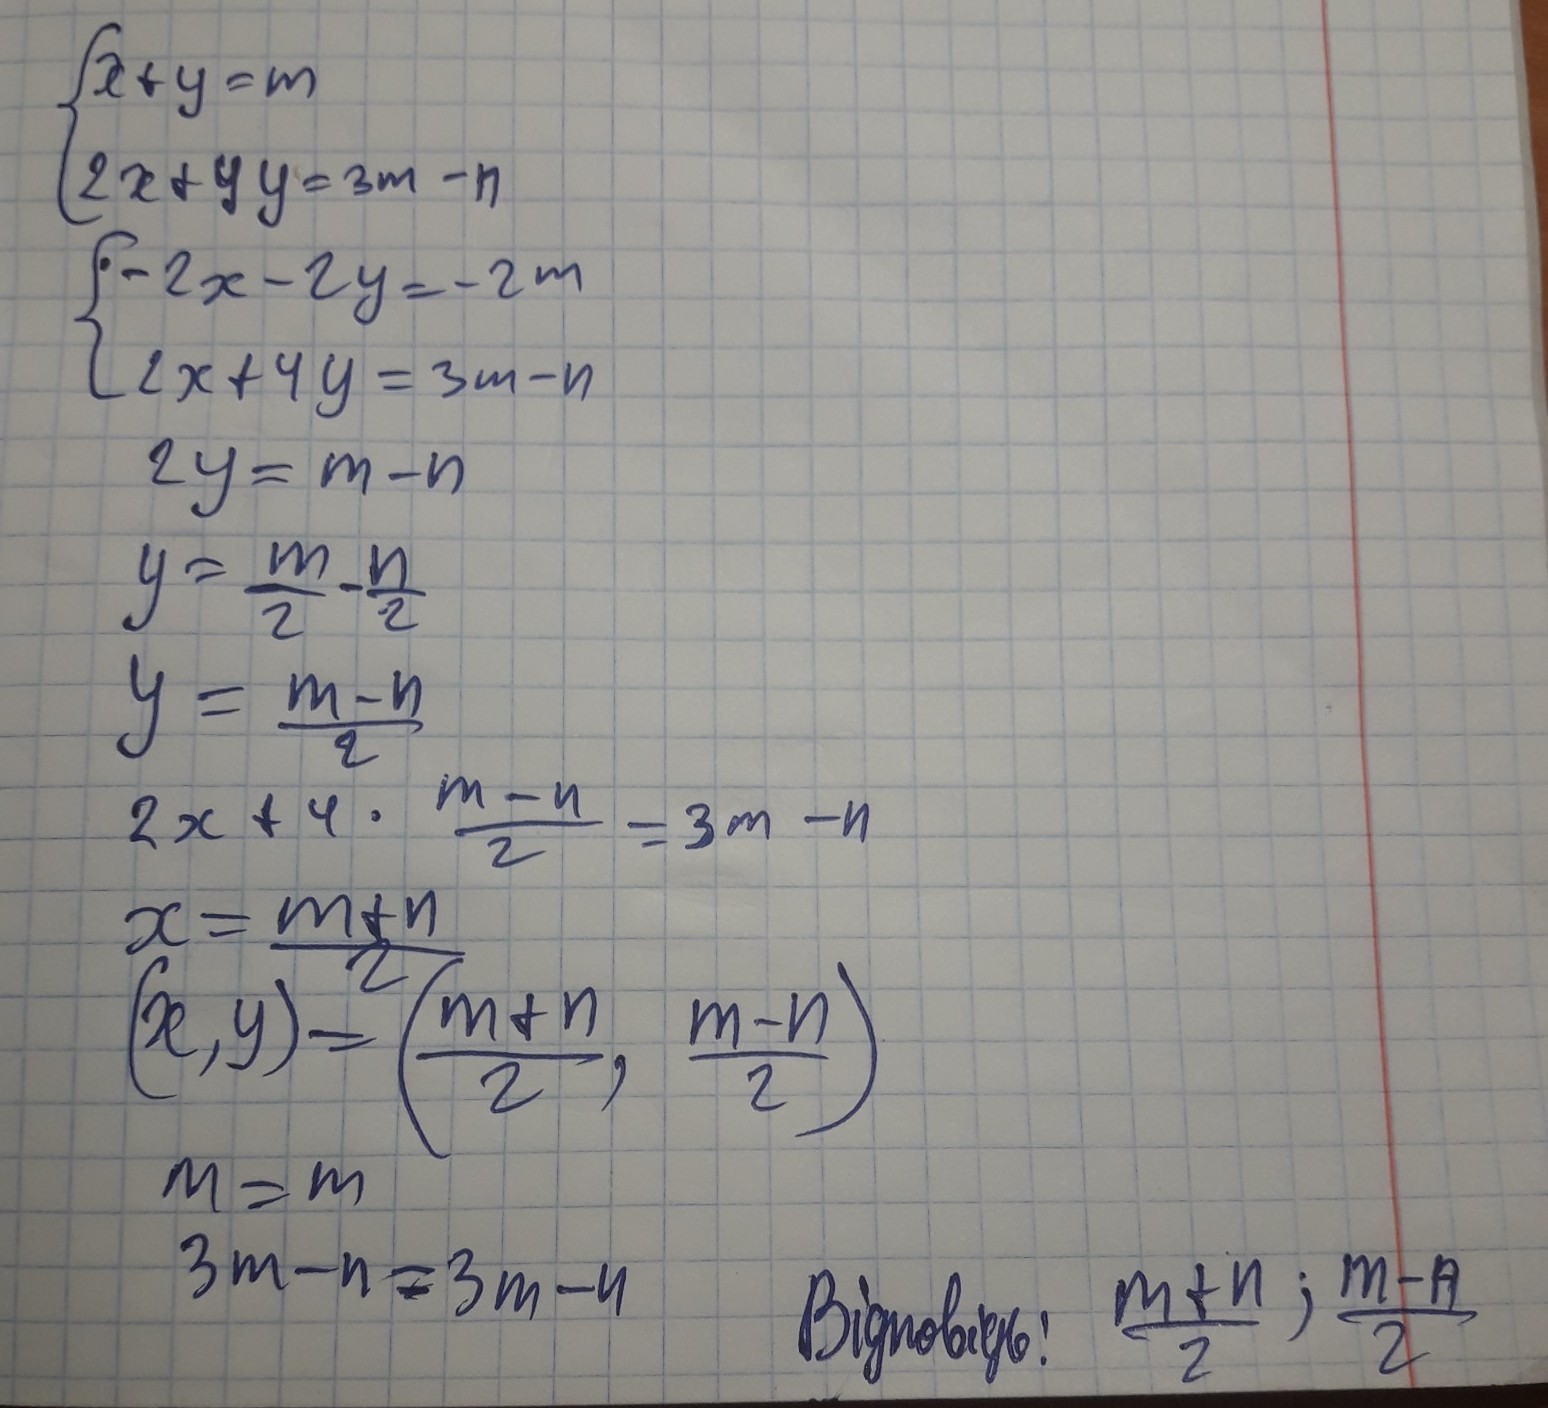 x+y=m
2x+4y=3m-n
-2x-2y=-2m
2x+4y=3m-n
2y=m-n
y=m/2-n/2
y=(m-n)/2
2x+4·(m-n)/2=3m-n
x=(m+n)/2
(x,y)=((m+n)/2, (m-n)/2)
m=m
3m-n=3m-n
Відповідь: (m+n)/2; (m-n)/2